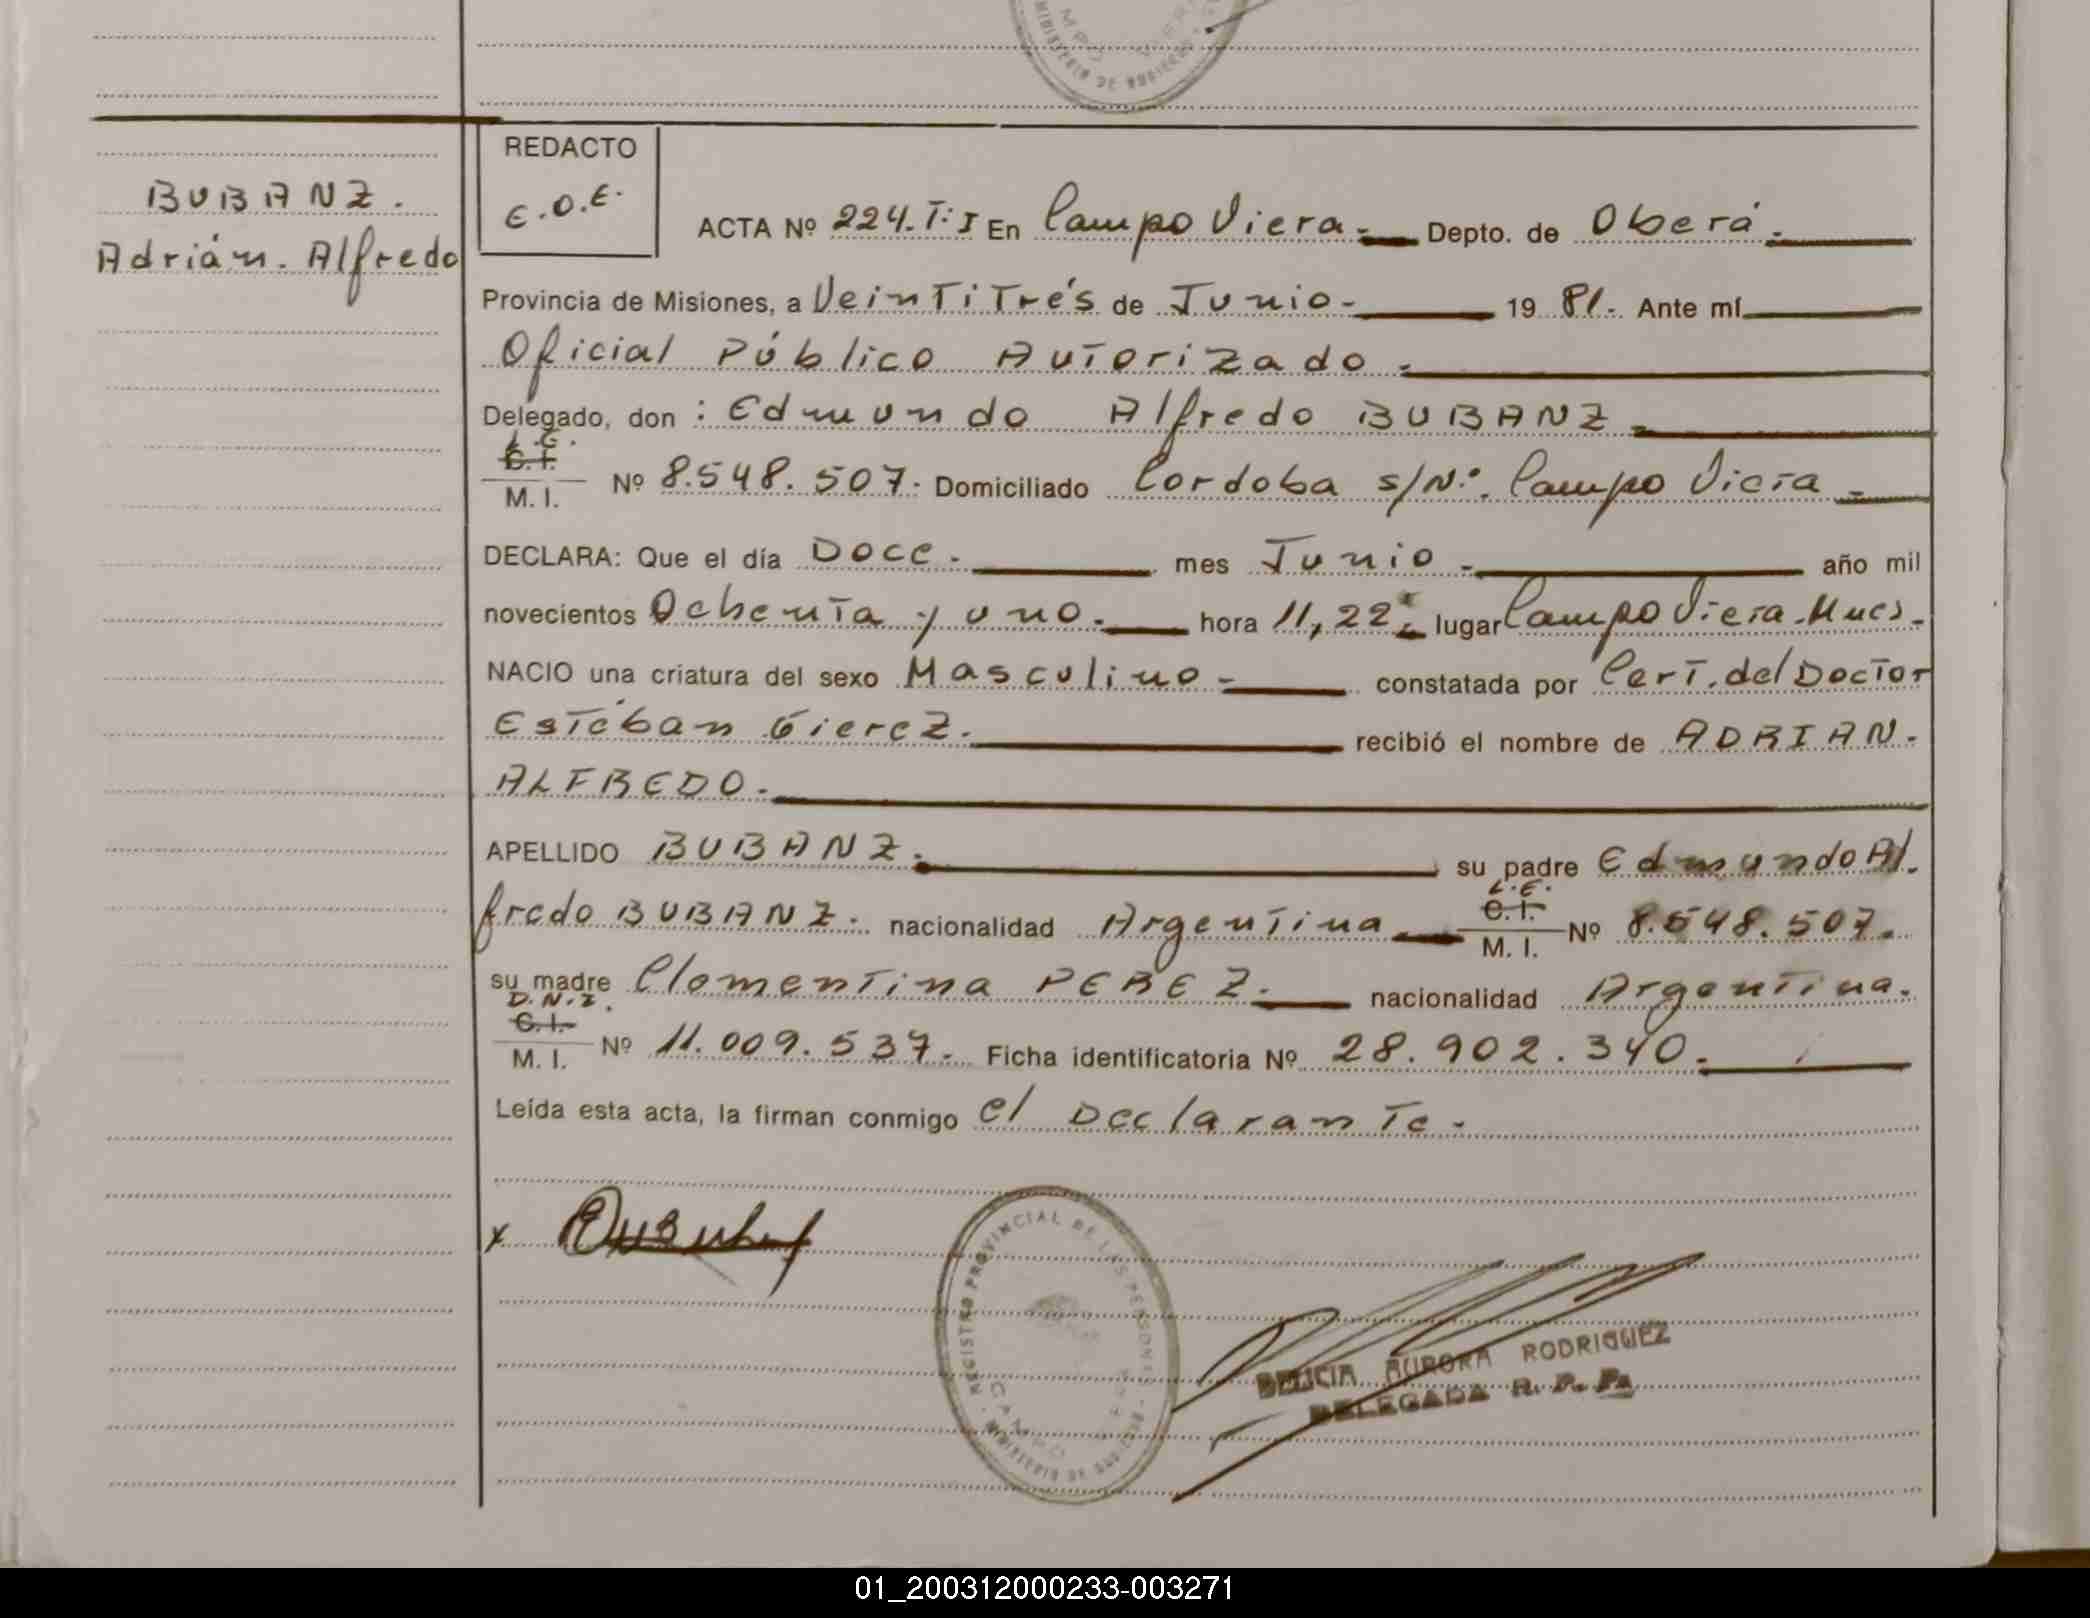 MINISTERIO DE GOBIERNO
REDACTO
E.O.E.
BUBANZ.
Adrián. Alfredo
ACTA Nº 224.T:I En Campo Viera.- Depto. de Oberá.-
Provincia de Misiones, a VeinTiTrés de Junio- 19 81.- Ante mí
Oficial Público AuTorizado.-
Delegado, don : Edmundo Alfredo BUBANZ.-
L.E.
C. I.
M. I. Nº 8.548.507.- Domiciliado Cordoba s/Nº. Campo Viera.-
DECLARA: Que el día Doce.- mes Junio.- año mil
novecientos Ochenta y uno.- hora 11,22.- lugar Campo Viera.Mnes.-
NACIO una criatura del sexo Masculino.- constatada por Cert. del Doctor
Estéban Gierez.- recibió el nombre de ADRIAN.-
ALFREDO.-
APELLIDO BUBANZ.- su padre Edmundo Al.
fredo BUBANZ.- nacionalidad Argentina.-
L.E.
C. I.
M. I. Nº 8.548.507.-
su madre Clementina PEREZ.- nacionalidad Argentina.
D.N.I.
C. I.
M. I. Nº 11.009.537.- Ficha identificatoria Nº 28.902.340.-
Leída esta acta, la firman conmigo el Declarante.-
x
REGISTRO PROVINCIAL DE LAS PERSONAS
CAMPO
MINISTERIO DE GOBIERNO
DELICIA AURORA RODRIGUEZ
DELEGADA R. P. P.
01_200312000233-003271